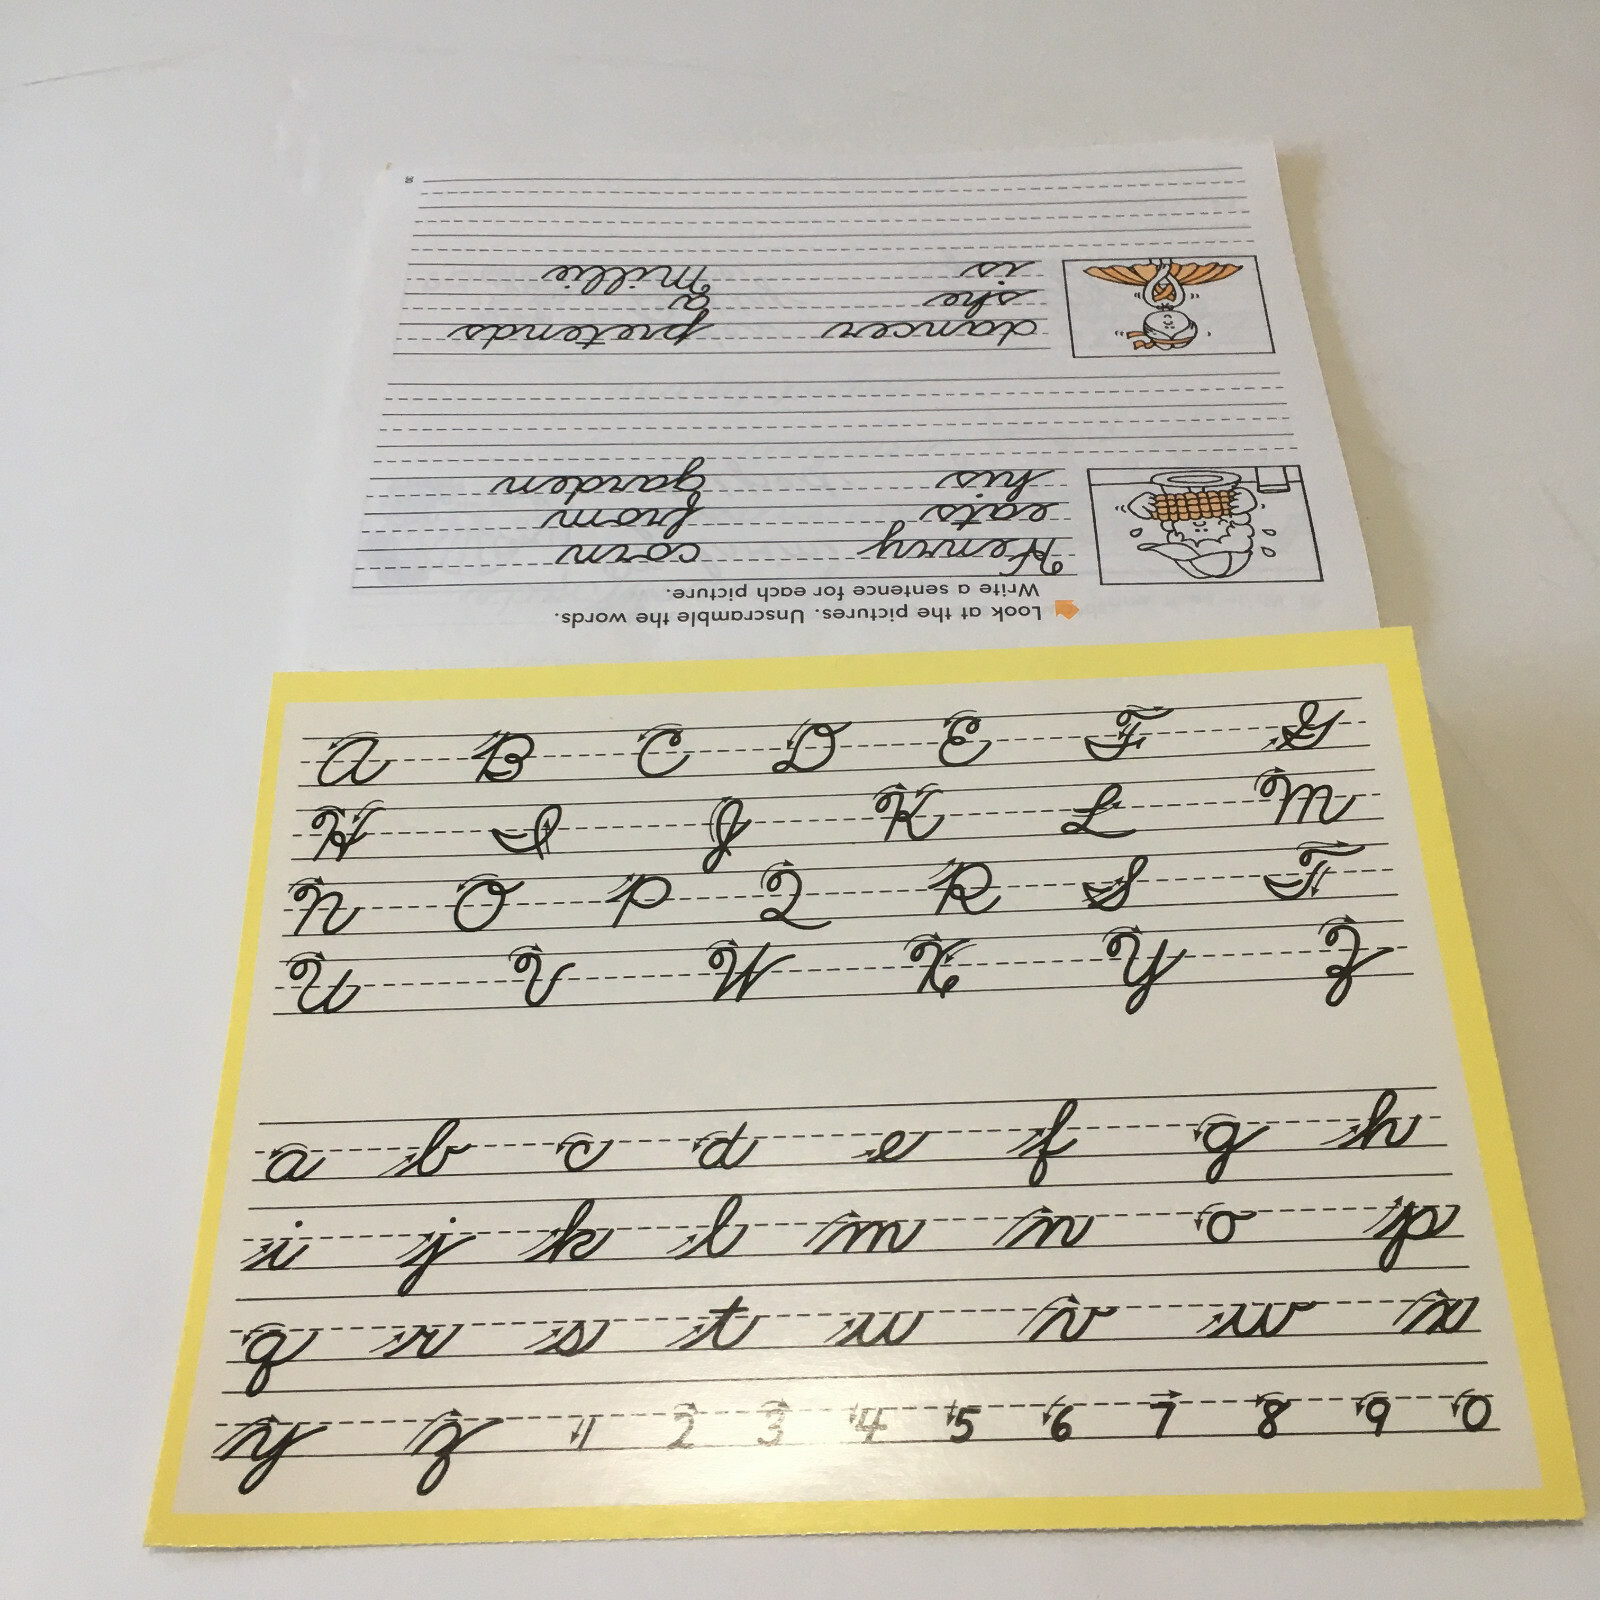 Look at the pictures. Unscramble the words.
Write a sentence for each picture.
Henry corn
eats from
his garden
dancer pretends
she a
is Millie
A B C D E F G
H I J K L M
N O P Q R S T
U V W X Y Z
a b c d e f g h
i j k l m n o p
q r s t u v w x
y z 1 2 3 4 5 6 7 8 9 0